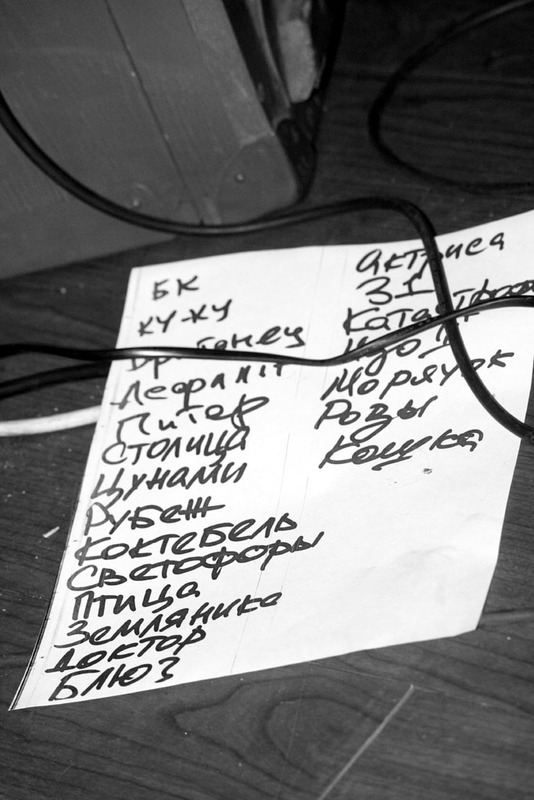 БК
КУ-КУ
Британец
Лефрант
Питер
СТОЛИЦА
ЦУНАМИ
РУБЕЖ
КОКТЕБЕЛЬ
СВЕТОФОРЫ
ПТИЦА
ЗЕМЛЯНИКА
ДОКТОР
БЛЮЗ
АКТРИСА
31
Катастрофа
Морячок
Розы
Кошка